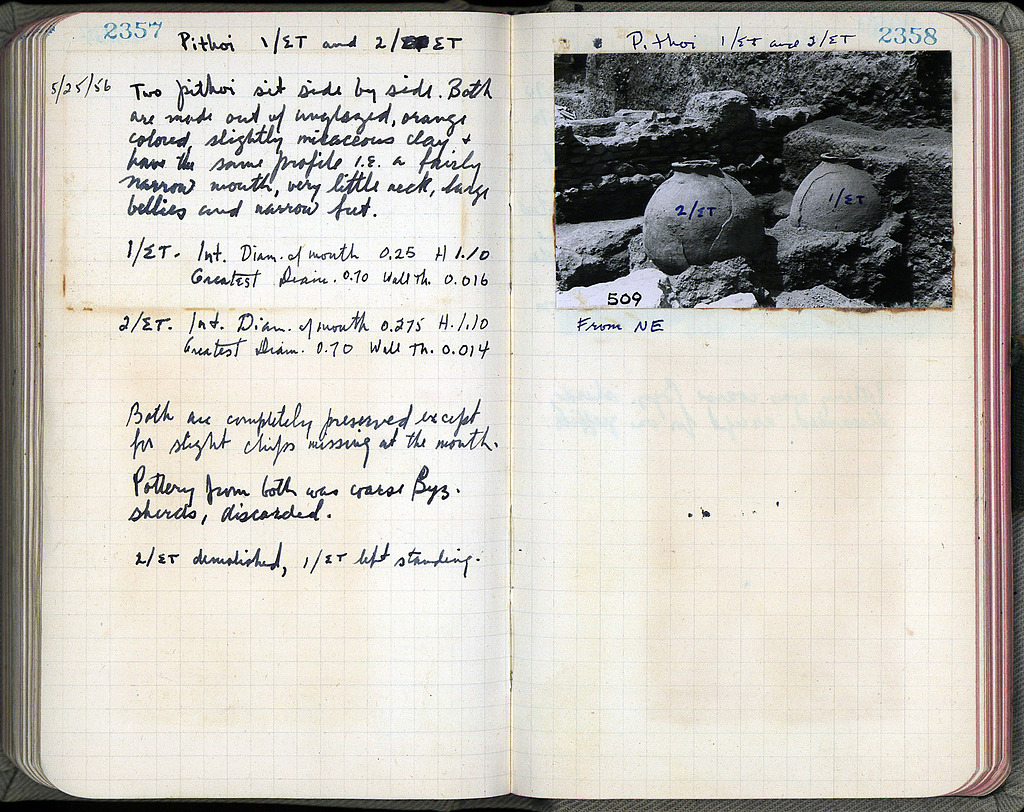 2357
Pithoi 1/ΣΤ and 2/ΣΤ
5/25/56 Two pithoi sit side by side. Both
are made out of unglazed, orange
colored, slightly micaceous clay +
have the same profile I.E. a fairly
narrow mouth, very little neck, large
bellies and narrow feet.
1/ΣΤ. Int. Diam. of mouth 0.25 H 1.10
Greatest Diam. 0.70 Wall Th. 0.016
2/ΣΤ. Int. Diam. of mouth 0.275 H. 1.10
Greatest Diam. 0.70 Wall Th. 0.014
Both are completely preserved except
for slight chips missing at the mouth.
Pottery from both was coarse Byz.
sherds, discarded.
2/ΣΤ demolished, 1/ΣΤ left standing.
Pithoi 1/ΣΤ and 2/ΣΤ 2358
2/ΣΤ
1/ΣΤ
509
From NE